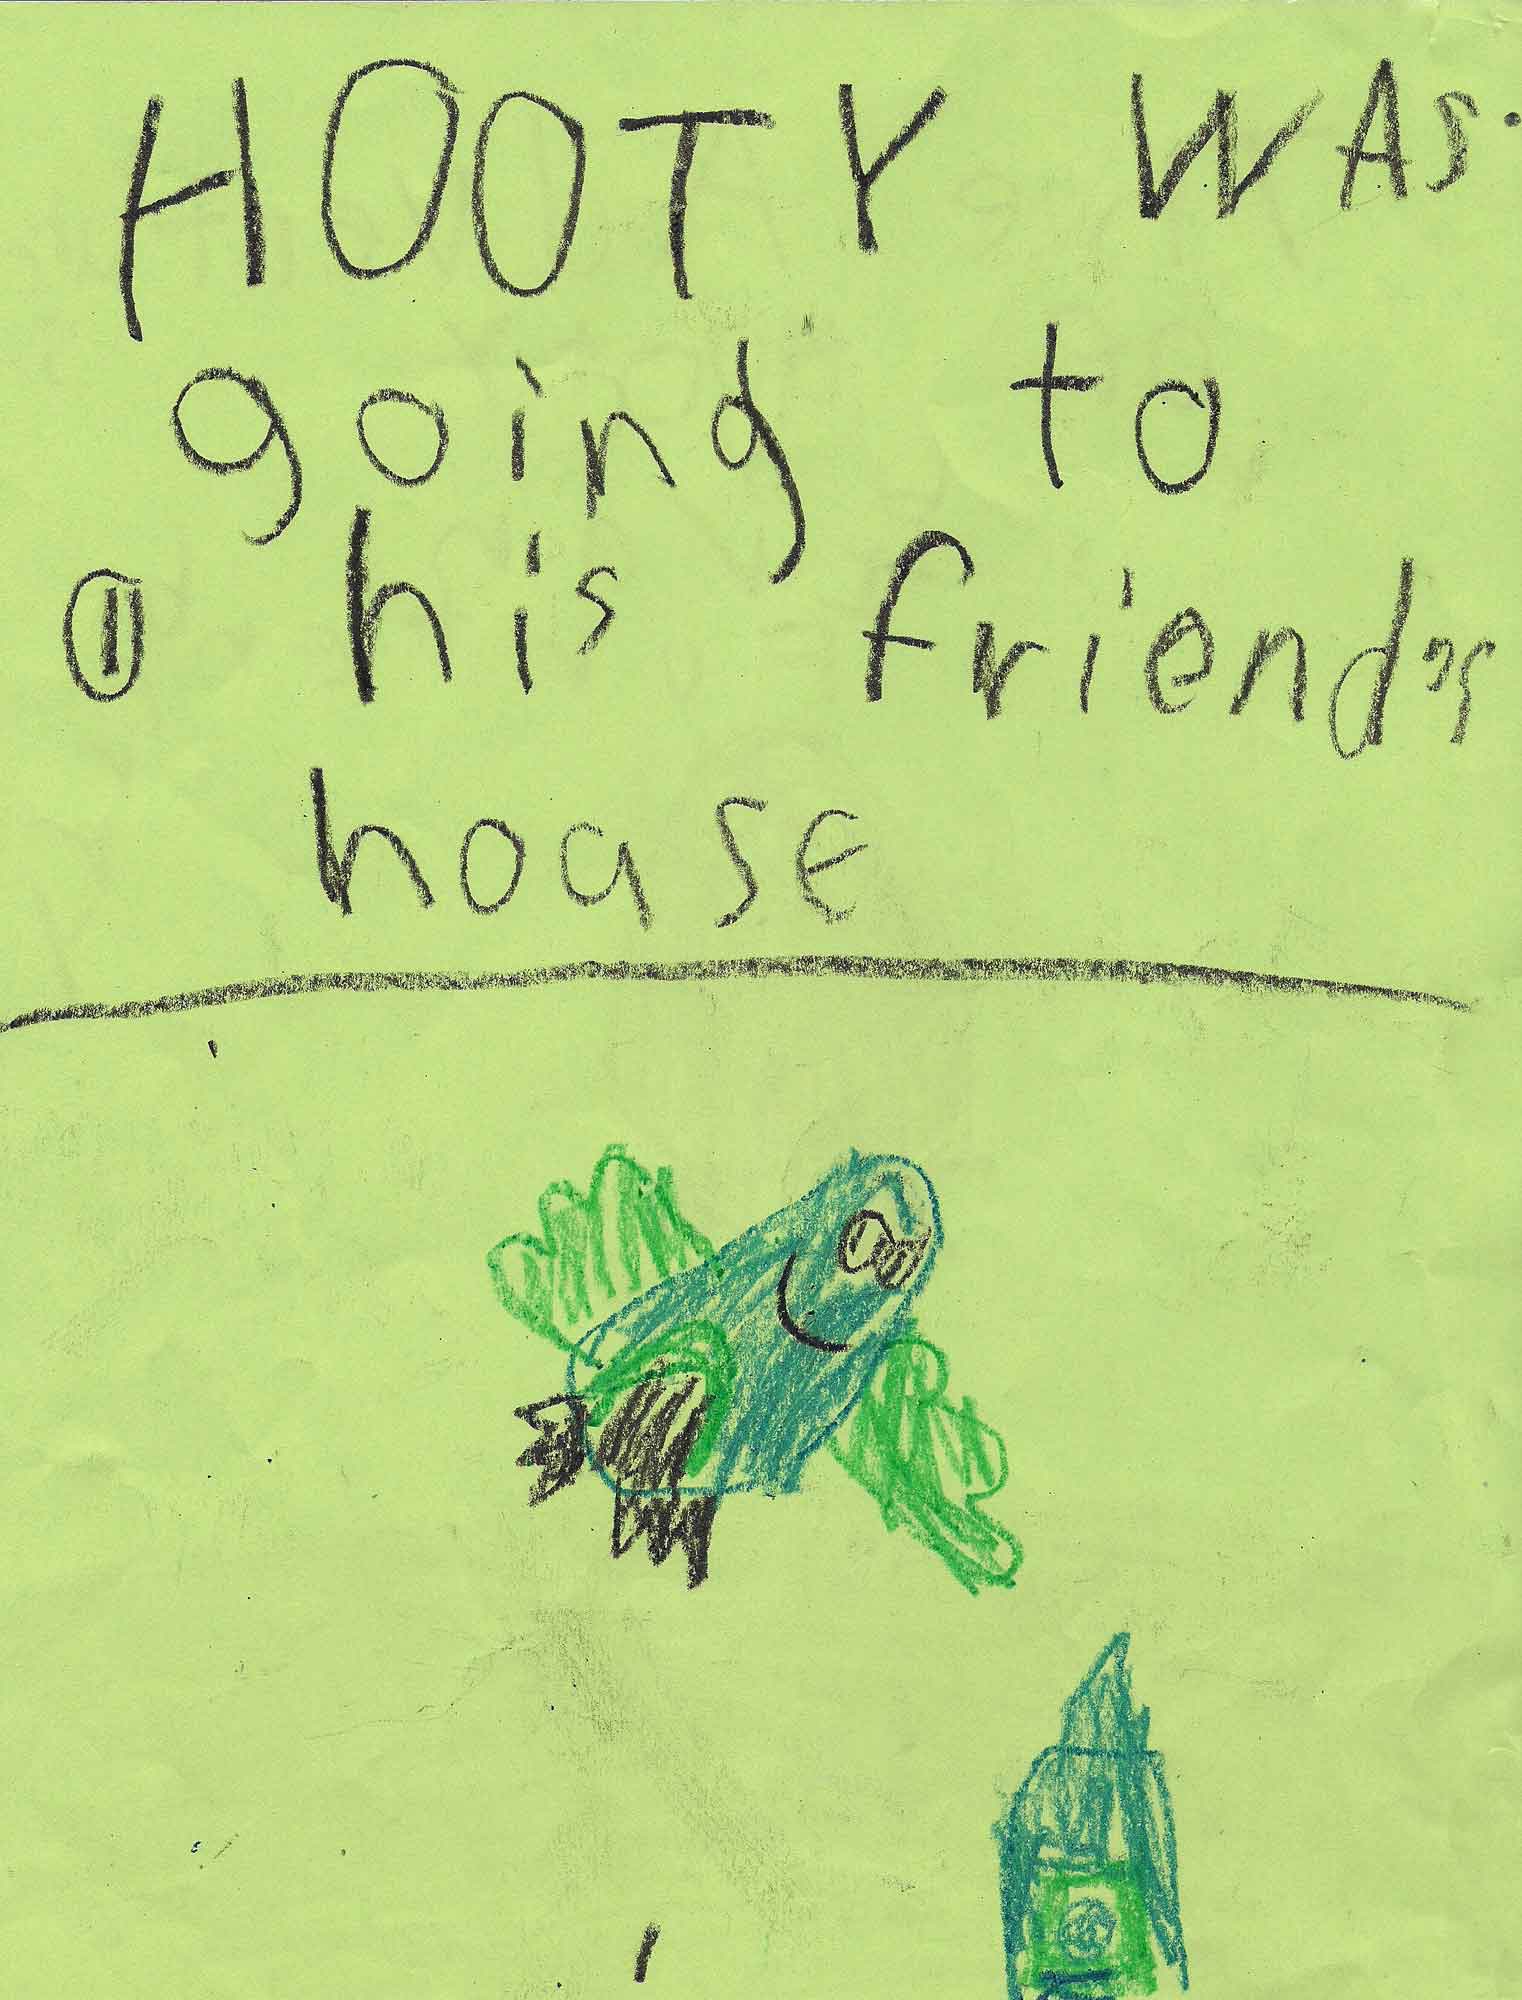 HOOTY WAS.
going to
① his friend's
house